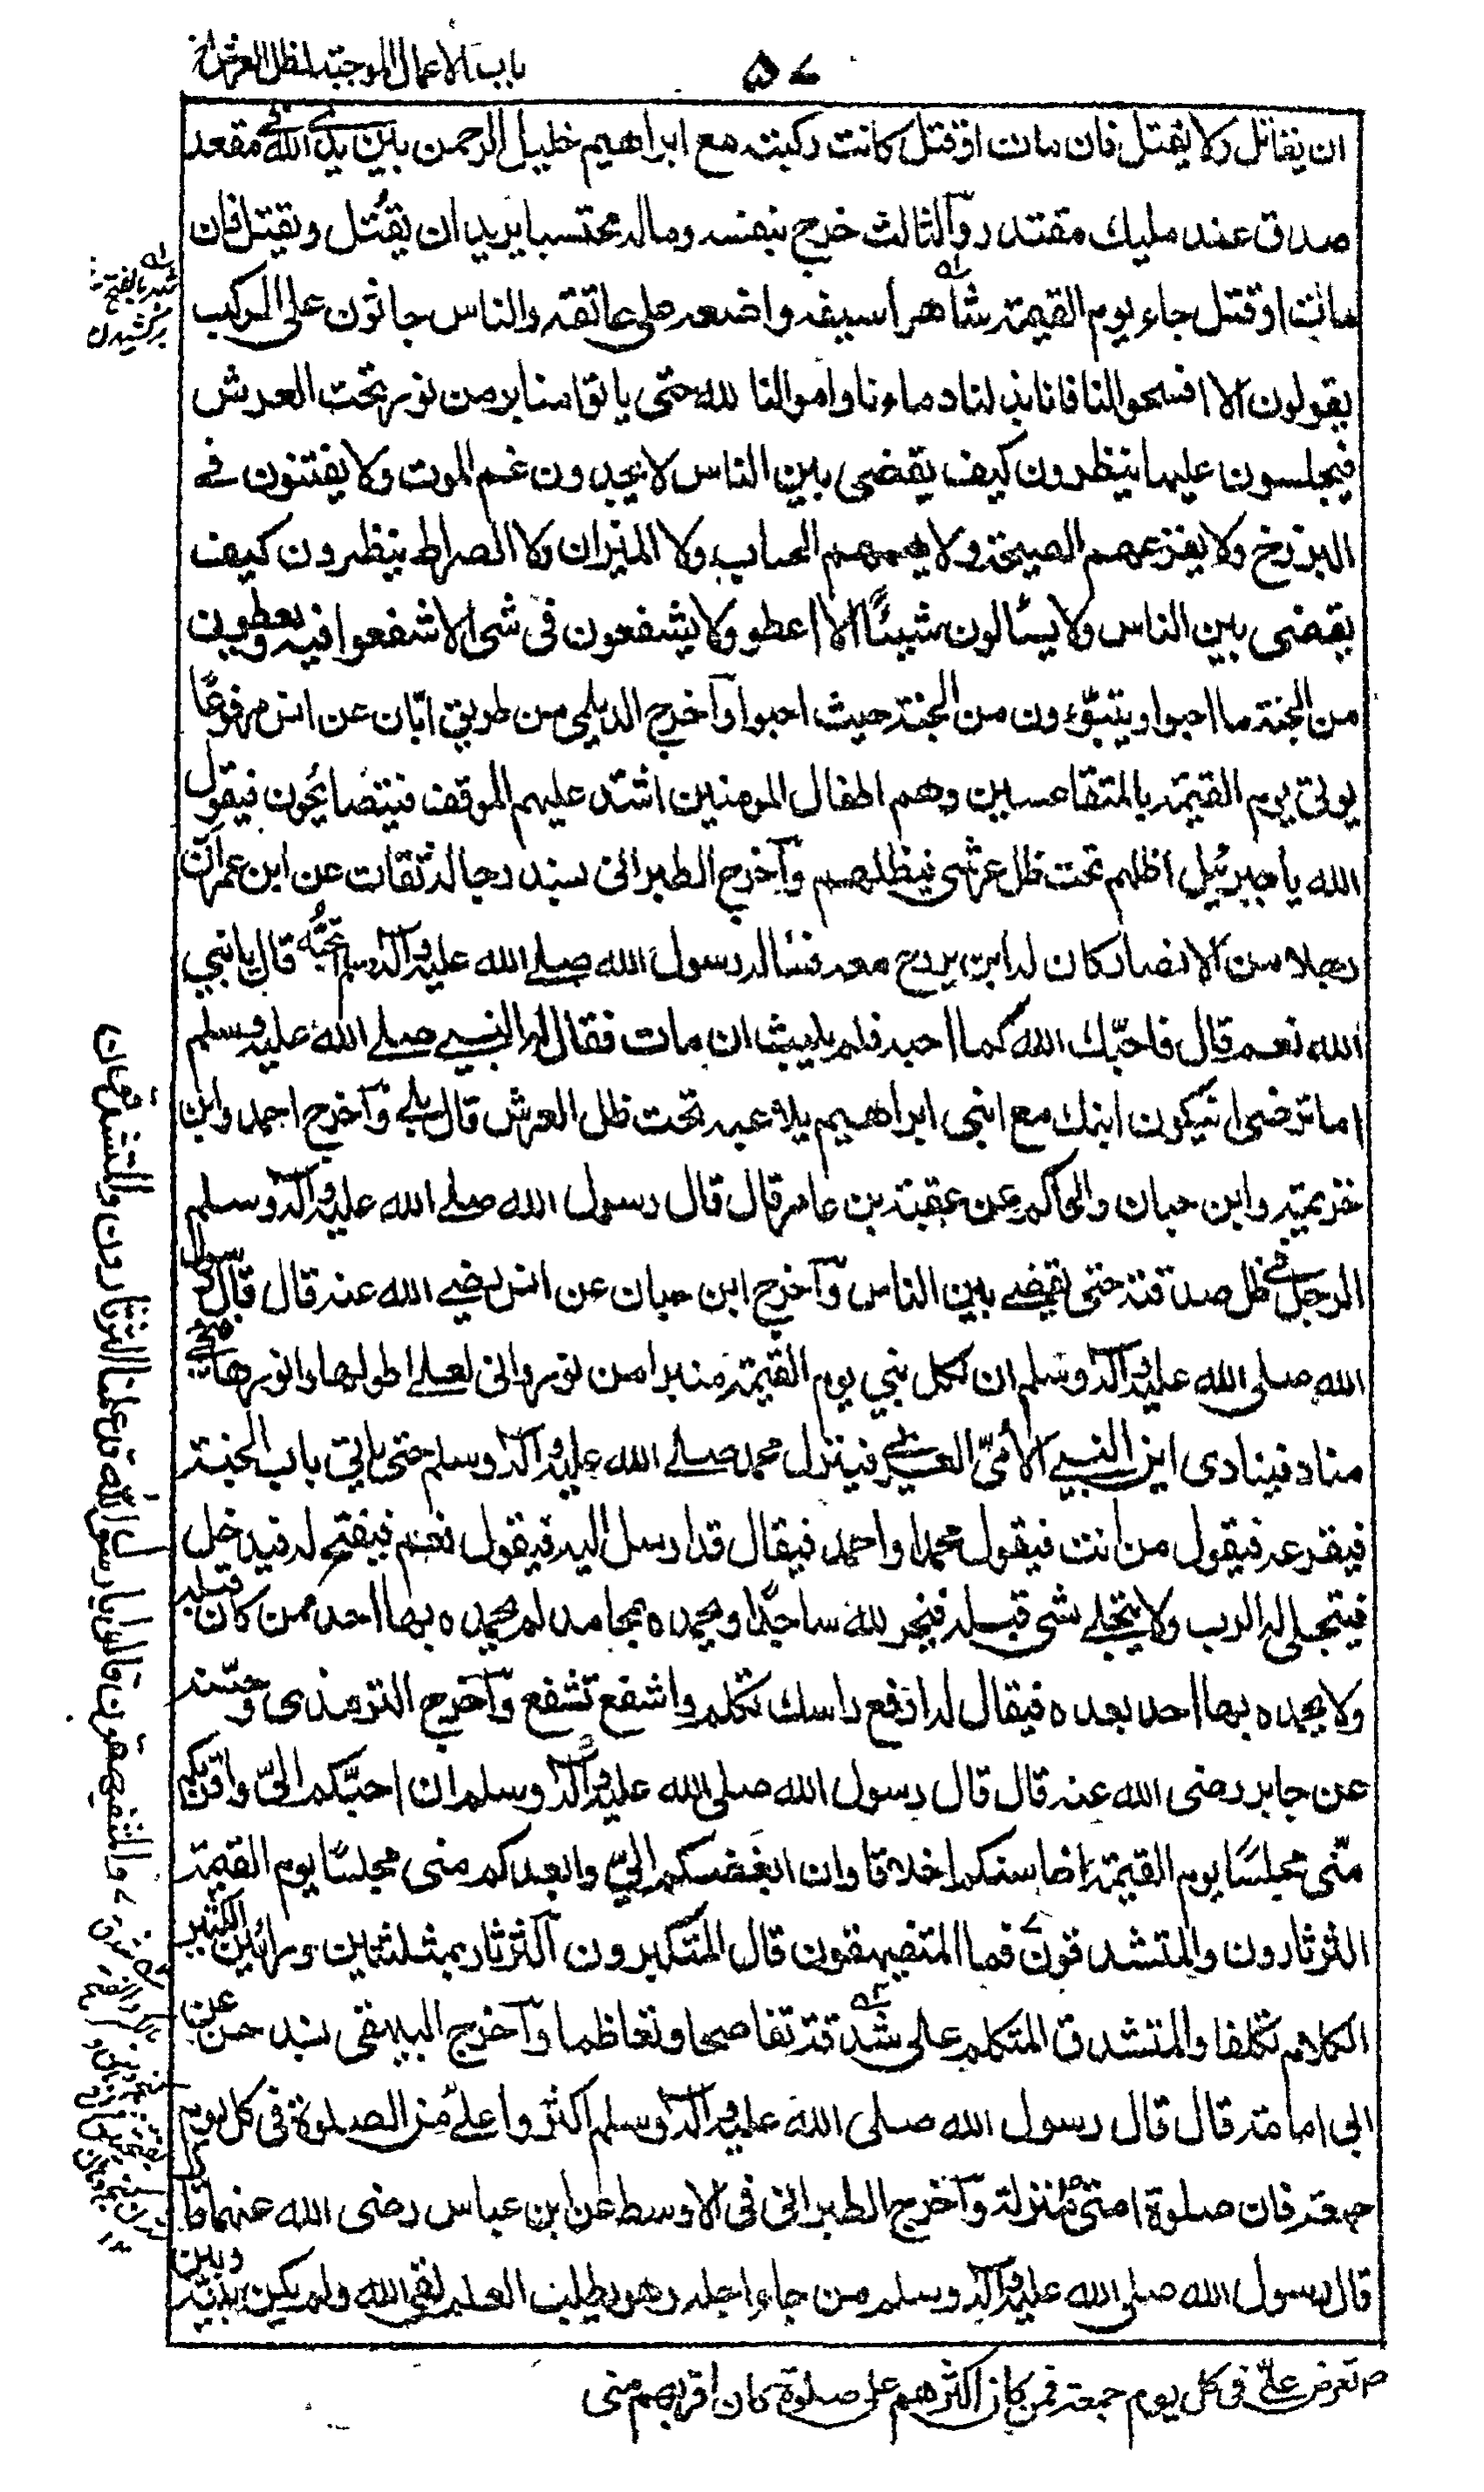 باب الاعمال الموجبة لظل العرش الخ
٥٧
ان يقاتل ولا يقتل فان مات او قتل كانت ركبته مع ابراهيم خليل الرحمن بين يدي الله في مقعد
صدق عند مليك مقتدر والثالث خرج بنفسه وماله محتسبا يريد ان يقتل ويقتل فان
مات او قتل جاء يوم القيمة شاهرا سيفه واضعه على عاتقه والناس جاثون على الركب
يقولون الا افسحوا لنا فانا بذلنا دماءنا واموالنا لله حتى ياتوا منابر من نور تحت العرش
فيجلسون عليها ينظرون كيف يقضى بين الناس لا يجدون غم الموت ولا يفتنون في
البرزخ ولا يفزعهم الصيحة ولا يهمهم الحساب ولا الميزان ولا الصراط ينظرون كيف
يقضى بين الناس ولا يسألون شيئًا الا اعطو ولا يشفعون في شئ الا شفعوا فيه ويعطون
من الجنة ما احبوا ويتبوّءون من الجنة حيث احبوا وآخرج الديلمي من طريق ابّان عن انس مرفوعًا
يولتي يوم القيمة بالمتقاعسين وهم اطفال المومنين اشتد عليهم الموقف فيتصائحون فيقول
الله يا جبرئيل اظلهم تحت ظل عرشى فيظلهم وآخرج الطبرانى بسند رجاله ثقات عن ابن عمر ان
رجلا من الانصار كان له ابن يروح معه فسأله رسول الله صلے الله عليه وآله وسلم تحبّه قال يا نبي
الله نعم قال فاحبّك الله كما احبه فلم يلبث ان مات فقال له النبي صلے الله عليه وسلم
اما ترضى ان يكون ابنك مع ابنى ابراهيم يلاعبه تحت ظل العرش قال بلے وآخرج احمد وابن
خزيمة وابن حبان والحاكم عن عقبة بن عامر قال قال رسول الله صلے الله عليه وآله وسلم
الرجل في ظل صدقته حتى يقضے بين الناس وآخرج ابن حبان عن انس رضے الله عنه قال قال رسول
الله صلى الله عليه وآله وسلم ان لكل نبي يوم القيمة منبرا من نور وانى لعلے اطولها وانورها فيجئ
مناد فينادى اين النبي الأميّ العربي فينزل محمد صلے الله عليه وآله وسلم حتى ياتي باب الجنة
فيقرعه فيقول من انت فيقول محمد او احمد فيقال قد ارسل اليه فيقول نعم فيفتح له فيدخل
فيتجلى له الرب ولا يتجلے شى قبله فيخر لله ساجدًا ويحمده بمحامد لم يحمده بها احد ممن كان قبله
ولا يحمده بها احد بعده فيقال له ارفع راسك تكلم واشفع تشفع وآخرج الترمذى وحسّنه
عن جابر رضى الله عنه قال قال رسول الله صلى الله عليه وآله وسلم ان احبّكم الىّ واقربكم
منّى مجلسًا يوم القيمة احاسنكم اخلاقا وان ابغضكم الىّ وابعدكم منى مجلسًا يوم القيمة
الثرثارون والمتشدقون فما المتفيهقون قال المتكبرون الثرثار بمثلثتين ورائين الكثير
الكلام تكلفا والمتشدق المتكلم على شدقه تفاصحا وتعاظما وآخرج البيهقى بسند حسن عن
ابى امامة قال قال رسول الله صلى الله عليه وآله وسلم اكثروا علے من الصلوة في كل يوم
جمعة فان صلوة امتى منزلة وآخرج الطبرانى فى الاوسط عن ابن عباس رضى الله عنهما قال
قال رسول الله صلى الله عليه وآله وسلم من جاء اجله وهو يطلب العلم لقى الله ولم يكن بينه وبين
تعرض علىّ في كل يوم جمعة فمن كان اكثرهم على صلوة كان اقربهم منى
شهر بالفتح
بركشيدن
والمتفيهقون قالوا يا رسول الله قد علمنا الثرثارون والمتشدقون